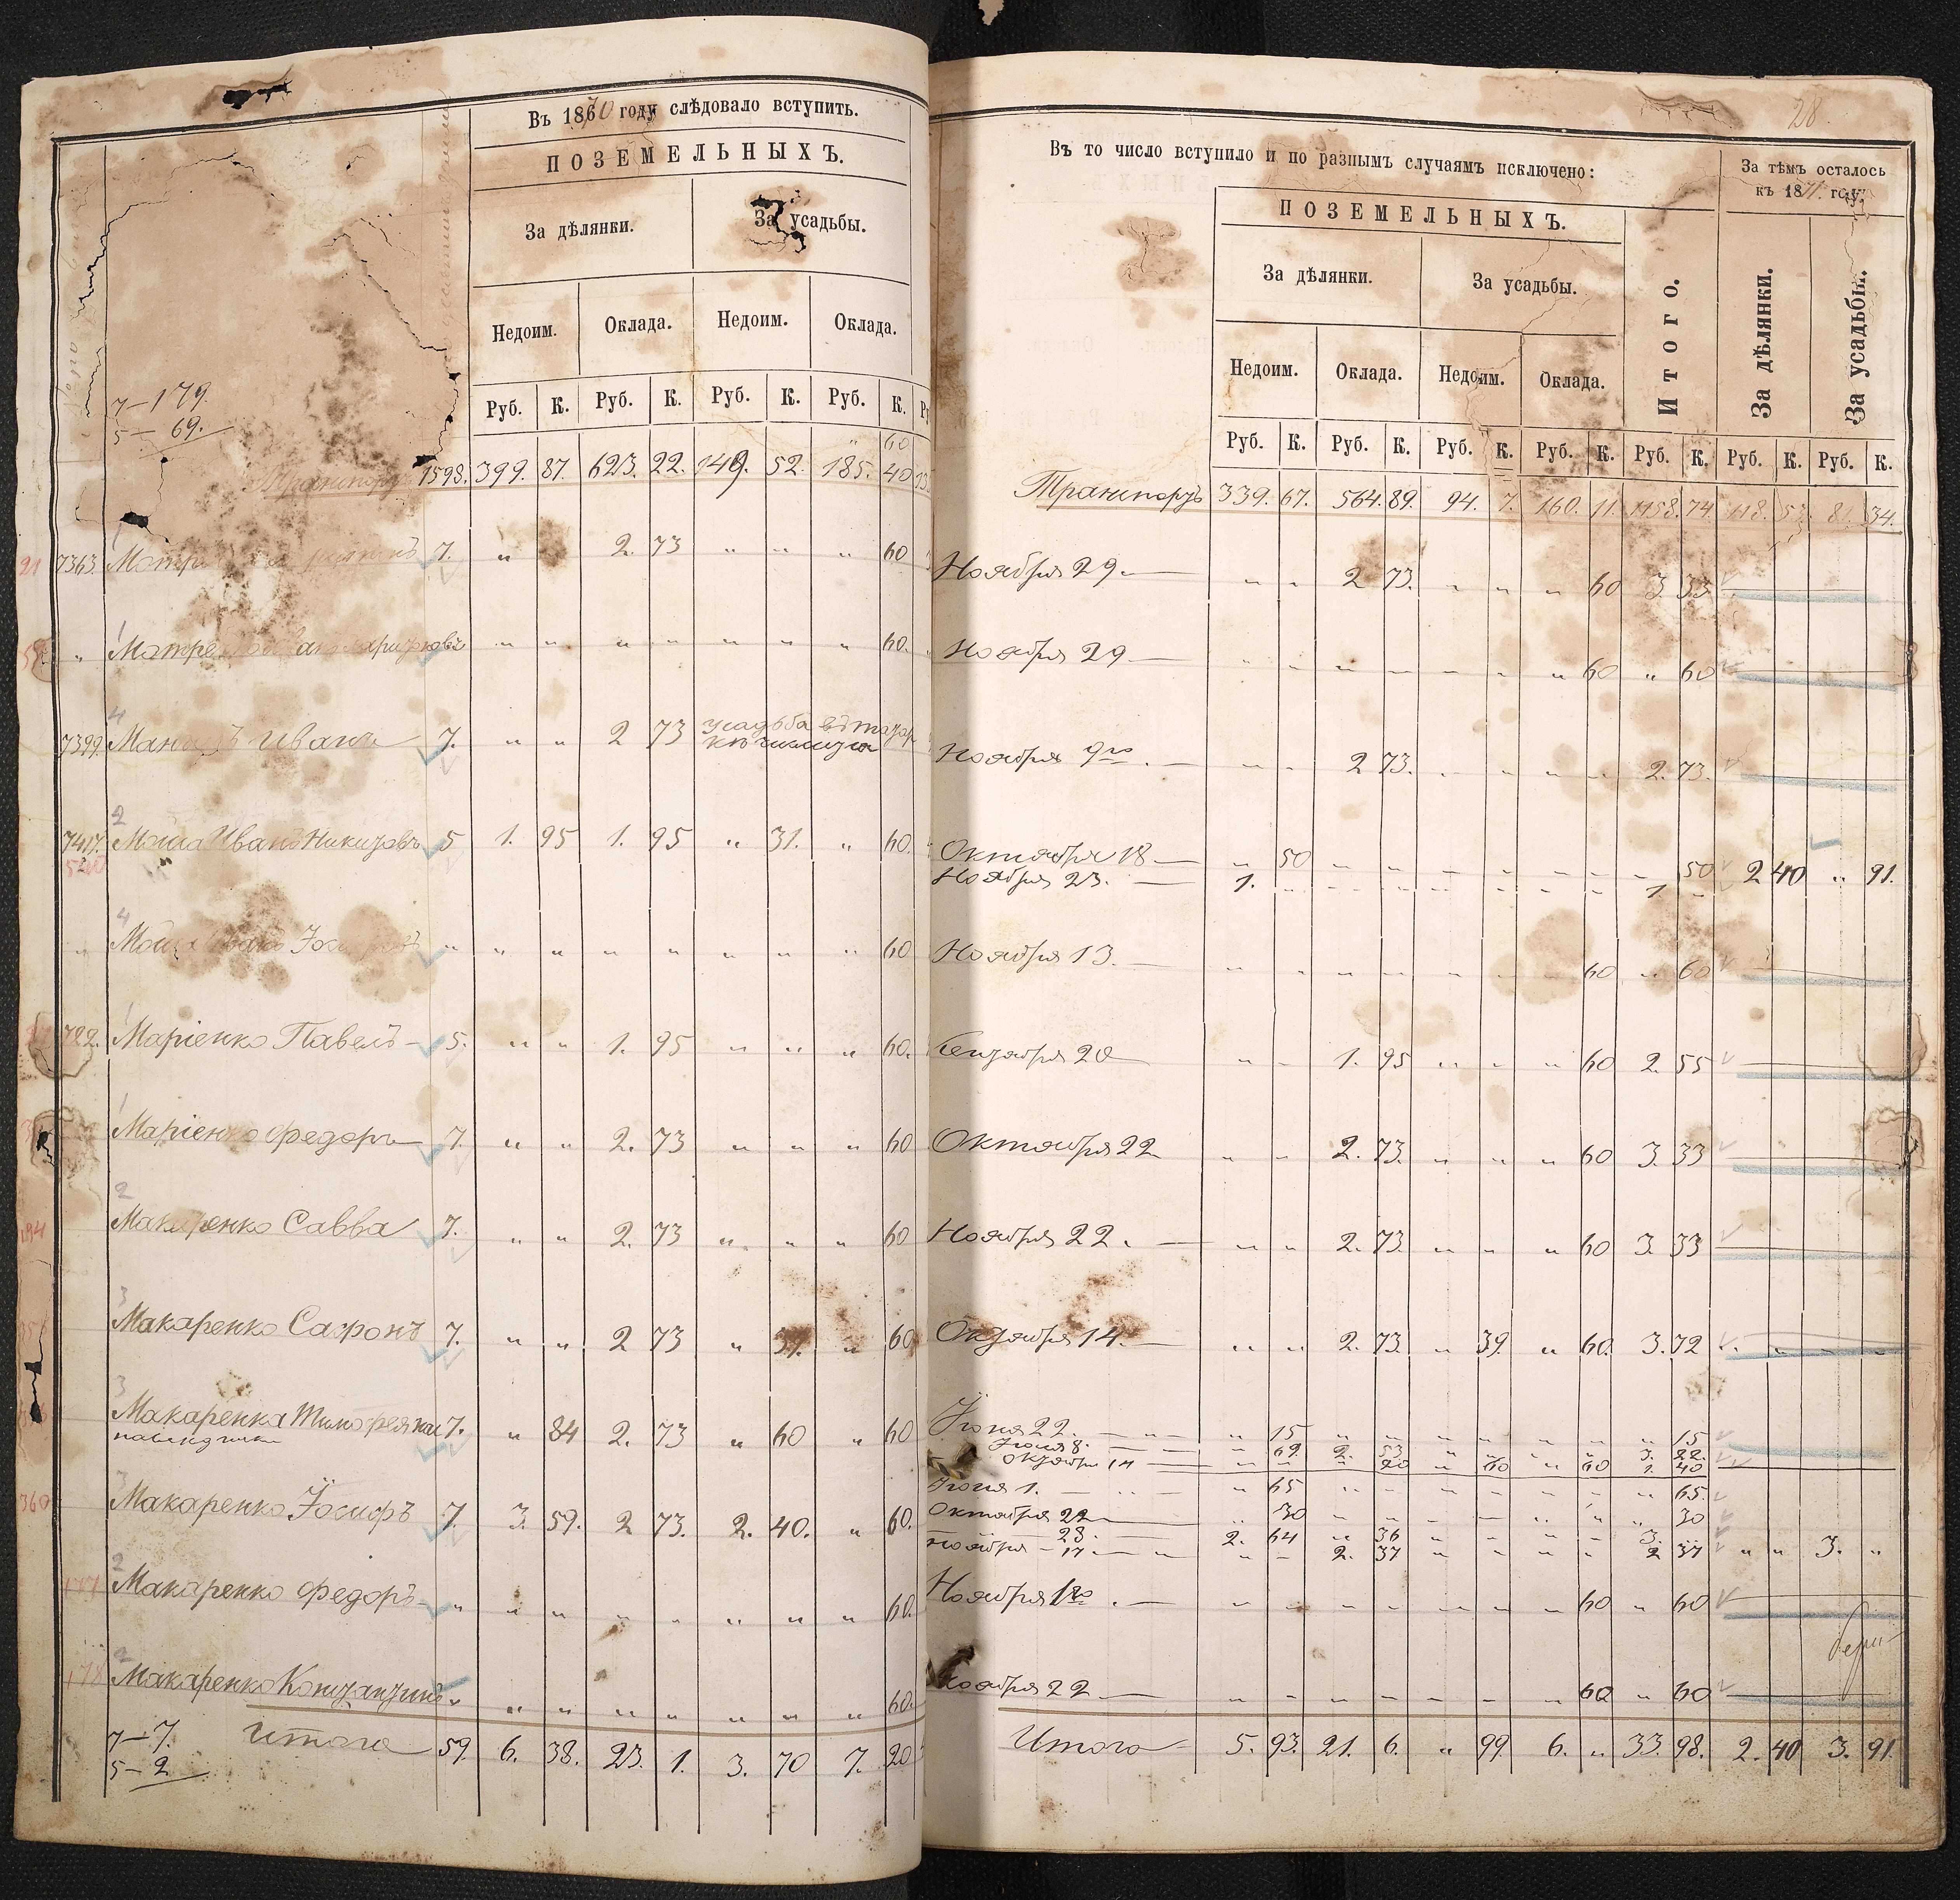 Въ 1870 году слѣдовало вступить.
ПОЗЕМЕЛЬНЫХЪ.
За дѣлянки. За усадьбы.
Недоим. Оклада. Недоим. Оклада.
Руб. К. Руб. К. Руб. К. Руб. К.
7–179.
5– 69.
60
Транспортъ 1598. 399. 87. 623. 22. 149. 52. 185. 40
21 7363. 7. „ 2. 73 „ „ „ 60
„ „ „ „ „ „ „ „ 60.
4
7399. Иванъ 7. „ „ 2 73 усадьба въ
2
7417. Моша Иванъ Никитовъ 5 1. 95 1. 95 „ 31. „ 60.
540
4
Моша Иванъ „ „ „ „ „ „ „ „ 60
722. Маріенко Павелъ – 5. „ „ 1. 95 „ „ „ 60.
1
Маріенко Федоръ 7. „ „ 2. 73 „ „ „ 60
2
194 Макаренко Савва 7. „ „ 2. 73 „ „ „ 60
3
Макаренко Сафонъ 7. „ „ 2 73 „ 39. „ 60
3
Макаренка Тимофея 7. „ 84 2. 73 „ 60 „ 60
3
360 Макаренко Іосифъ 7. 3. 59. 2 73. 2. 40. „ 60.
2
177 Макаренко Федоръ „ „ „ „ „ „ „ „ 60.
2
178 Макаренко Константинъ „ „ „ „ „ „ „ „ 60.
7–7.
5–2
Итого 59. 6. 38. 23. 1. 3. 70 7. 20
28.
Въ то число вступило и по разнымъ случаямъ исключено:
За тѣмъ осталось
къ 1871 году.
ПОЗЕМЕЛЬНЫХЪ.
За дѣлянки. За усадьбы.
Итого. За дѣлянки. За усадьбы.
Недоим. Оклада. Недоим. Оклада.
Руб. К. Руб. К. Руб. К. Руб. К. Руб. К. Руб. К. Руб. К.
Транспортъ 339. 67. 564. 89. 94. 7. 160. 11. 1158. 74. 118. 53. 81. 34.
Ноября 29. – „ „ 2 73. „ „ „ 60 3 33
Ноября 29 – „ „ „ „ „ „ „ 60 „ 60
Ноября 9го. – „ „ 2 73. „ „ „ „ 2. 73.
Октября 18 – „ 50 „ „ „ „ „ „ „ 50 2 40 „ 91.
Ноября 23. – 1. „ „ „ „ „ „ „ 1. „
Ноября 13. – „ „ „ „ „ „ „ 60 „ 60
Сентября 20 „ „ 1. 95 „ „ „ 60 2. 55
Октября 22 „ „ 2. 73. „ „ „ 60 3. 33
Ноября 22. – „ „ 2. 73 „ „ „ 60 3. 33
Октября 14. – „ „ 2. 73. „ 39. „ 60. 3. 72
Іюня 22. – „ 15 „ „ „ „ „ „ „ 15
8. – „ 69. 2. 53 „ „ „ „ 3. 22.
Октября 14 – „ „ „ 20 „ 60 „ 60 1. 40
Іюня 1. – „ 65 „ „ „ „ „ „ „ 65.
Октября 22 „ 30 „ „ „ „ „ „ „ 30
– 28. – 2. 64 „ 36 „ „ „ „ 3. „
Ноября – 17. – „ „ 2. 37 „ „ „ „ 2 37 „ „ 3. „
Ноября 1го. – „ „ „ „ „ „ „ 60 „ 60
Ноября 22 – „ „ „ „ „ „ „ 60 „ 60
Итого 5. 93. 21. 6. „ 99. 6. „ 33. 98. 2. 40 3. 91.